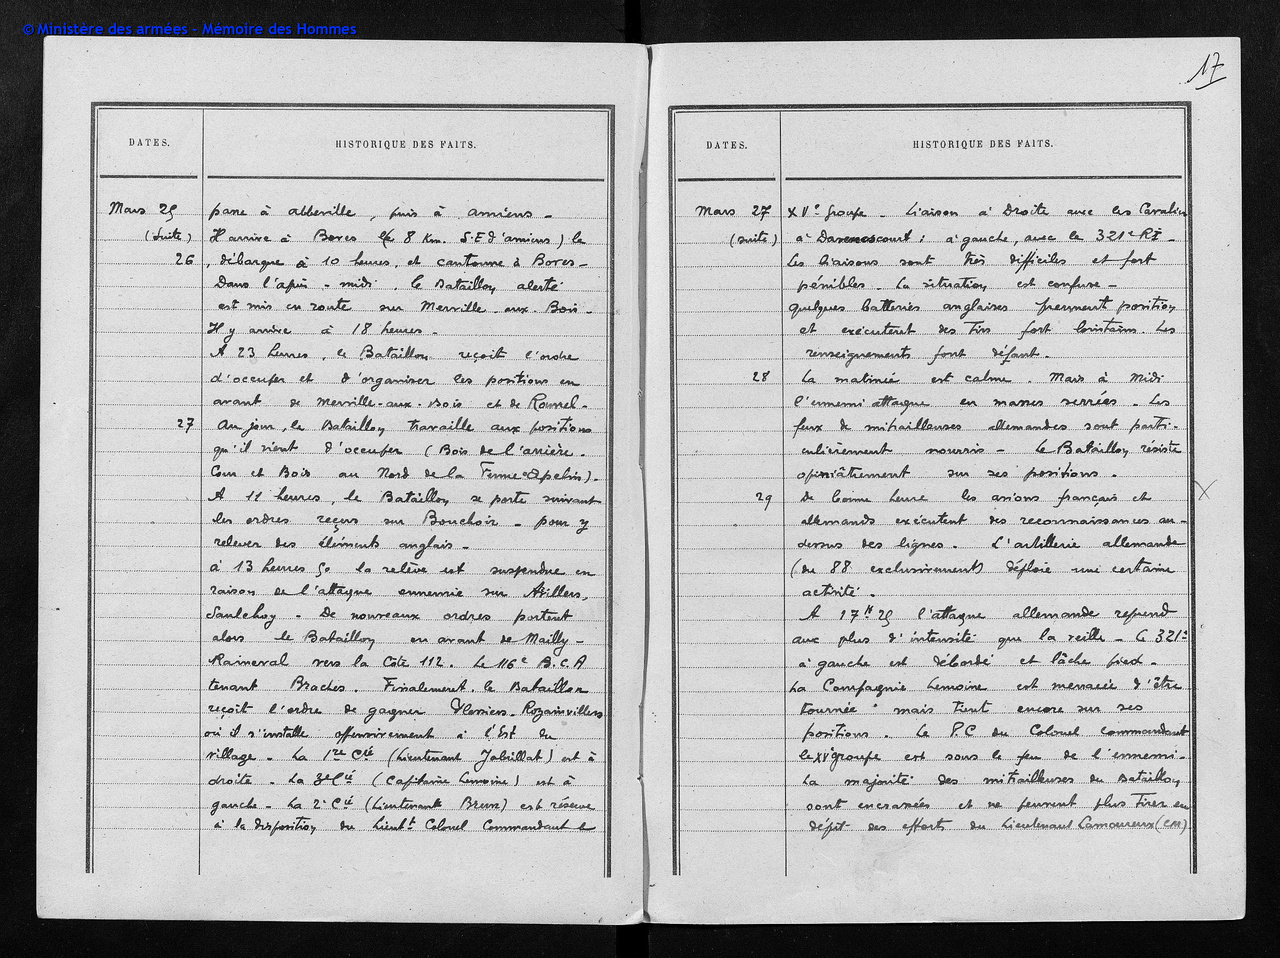 © Ministère des armées - Mémoire des Hommes
17
DATES.
HISTORIQUE DES FAITS.
Mars 25
passe à abbeville, puis à amiens -
(suite)
Il arrive à Boves (à 8 Km. S.E d'amiens) le
26
, débarque à 10 heures, et cantonne à Boves -
Dans l'après-midi, le Bataillon alerté
est mis en route sur Merville-aux-Bois -
Il y arrive à 18 heures -
A 23 heures, le Bataillon reçoit l'ordre
d'occuper et d'organiser les positions en
avant de Merville-aux-Bois et de Rouvrel -
27
Au jour, le Bataillon travaille aux positions
qu'il vient d'occuper (Bois de l'arrière-
Cour et Bois au Nord de la Ferme
A 11 heures, le Bataillon se porte suivant
les ordres reçus sur Bouchoir - pour y
relever des éléments anglais -
à 13 heures 50 la relève est suspendue en
raison de l'attaque ennemie sur
Saulchoy - De nouveaux ordres portent
alors le Bataillon en avant de Mailly-
Raineval vers la Cote 112. Le 116e B.C.A
tenant Braches. Finalement, le Bataillon
reçoit l'ordre de gagner Warsy-Rozainvillers
où il s'installe offensivement à l'Est du
village - La 1re Cie (Lieutenant Jabrillat) est à
droite - La 3e Cie (Capitaine Lemoine) est à
gauche - La 2e Cie (Lieutenant Brun) est réserve
à la disposition du Lieutt Colonel Commandant le
DATES.
HISTORIQUE DES FAITS.
Mars 27
XVe Groupe - Liaison à Droite avec les Cavaliers
(suite)
à Davenescourt ; à gauche, avec le 321e RI -
Les liaisons sont très difficiles et fort
pénibles - La situation est confuse -
Quelques batteries anglaises prennent position
et exécutent des tirs fort lointains. Les
renseignements font défaut.
28
La matinée est calme. Mais à midi
l'ennemi attaque en masses serrées - Les
feux de mitrailleuses allemandes sont parti-
culièrement nourris - Le Bataillon résiste
opiniâtrement sur ses positions.
29
De bonne heure les avions français et
allemands exécutent des reconnaissances au-
dessus des lignes. L'artillerie allemande
(du 88 exclusivement) déploie une certaine
activité.
A 17h 25 l'attaque allemande reprend
aux plus d'intensité que la veille - Le 321e
à gauche est débordé et lâche pied -
La Compagnie Lemoine est menacée d'être
tournée mais tient encore sur ses
positions. Le P.C du Colonel commandant
le XVe groupe est sous le feu de l'ennemi -
La majorité des mitrailleuses du Bataillon
sont encrassées et ne peuvent plus tirer en
dépit des efforts du Lieutenant Lamoureux (CM)